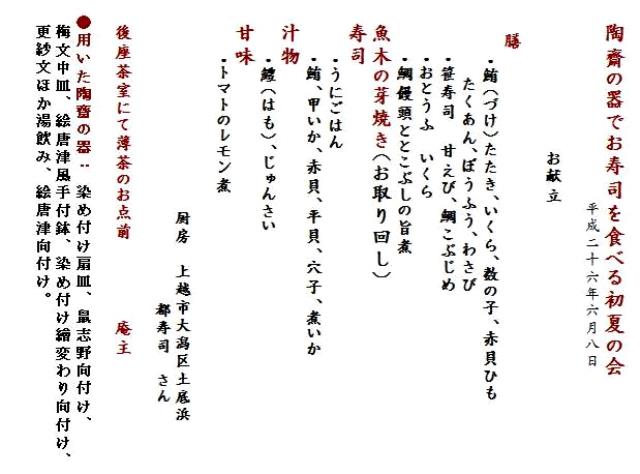 陶齋の器でお寿司を食べる初夏の会
平成二十六年六月八日
お献立
膳
・鮪(づけ)たたき、いくら、数の子、赤貝ひも
たくあん、ぼうふう、わさび
・笹寿司　甘えび、鯛こぶじめ
・おとうふ　いくら
・鯛饅頭ととこぶしの旨煮
魚木の芽焼き(お取り回し)
寿司
・うにごはん
・鮪、甲いか、赤貝、平貝、穴子、煮いか
汁物
・鱧(はも)、じゅんさい
甘味
・トマトのレモン煮
厨房　上越市大潟区土底浜
都寿司　さん
後座茶室にて薄茶のお点前　庵主
●用いた陶齋の器:　染め付け扇皿、鼠志野向付け、
梅文中皿、絵唐津風手付鉢、染め付け繪変わり向付け、
更紗文ほか湯飲み、絵唐津向付け。